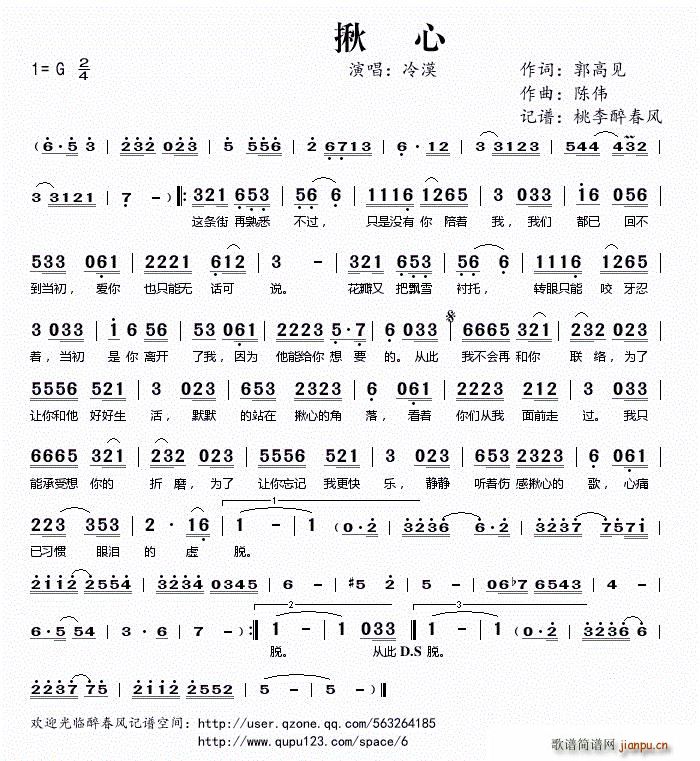 揪 心
1= G 2/4 演唱：冷漠 作词：郭高见
作曲：陈伟
记谱：桃李醉春风
( 6·5 3 | 232 023 | 5 556 | 2 6713 | 6·12 | 3 3123 | 544 4432 |
3 3121 | 7 - ) |: 321 653 | 56 6 | 1116 1265 | 3 033 | 16 056 |
这条街 再熟悉 不过， 只是没有 你 陪着 我，我们 都已 回不
533 061 | 2221 612 | 3 - | 321 653 | 56 6 | 1116 1265 |
到当初，爱你 也只能无 话可 说。 花瓣又 把飘雪 衬托， 转眼只能 咬 牙忍
3 033 | 1 6 56 | 53 061 | 2223 5·7 | 6 033 | 6665 321 | 232 023 |
着，当初 是你离开 了我，因为 他能给你 想 要 的。从此 我不会再 和你 联 络，为了
5556 521 | 3 023 | 653 2323 | 6 061 | 2223 212 | 3 033 |
让你和他 好好生 活，默默 的站在 揪心的角 落，看着 你们从我 面前走 过。我只
6665 321 | 232 023 | 5556 521 | 3 023 | 653 2323 | 6 061 |
能承受想 你的 折 磨，为了 让你忘记 我更快 乐，静静 听着伤 感揪心的 歌，心痛
1
223 353 | 2 · 16 | 1 - | 1 (0·2 | 3236 6·2 | 3237 7571 |
已习惯 眼泪 的 虚 脱。
2112 2554 | 3234 0345 | 6 - | #5 2 | 5 - | 06b7 6543 | 4 - |
2 3
6·5 54 | 3·6 | 7 - ) :| 1 - | 1 033 || 1 - | 1 (0·2 | 3236 6 |
脱。 从此 D.S 脱。
2237 75 | 2112 2552 | 5 - | 5 - ) ||
欢迎光临醉春风记谱空间：http://user.qzone.qq.com/563264185
http://www.qupu123.com/space/6
歌谱简谱网 jianpu.cn